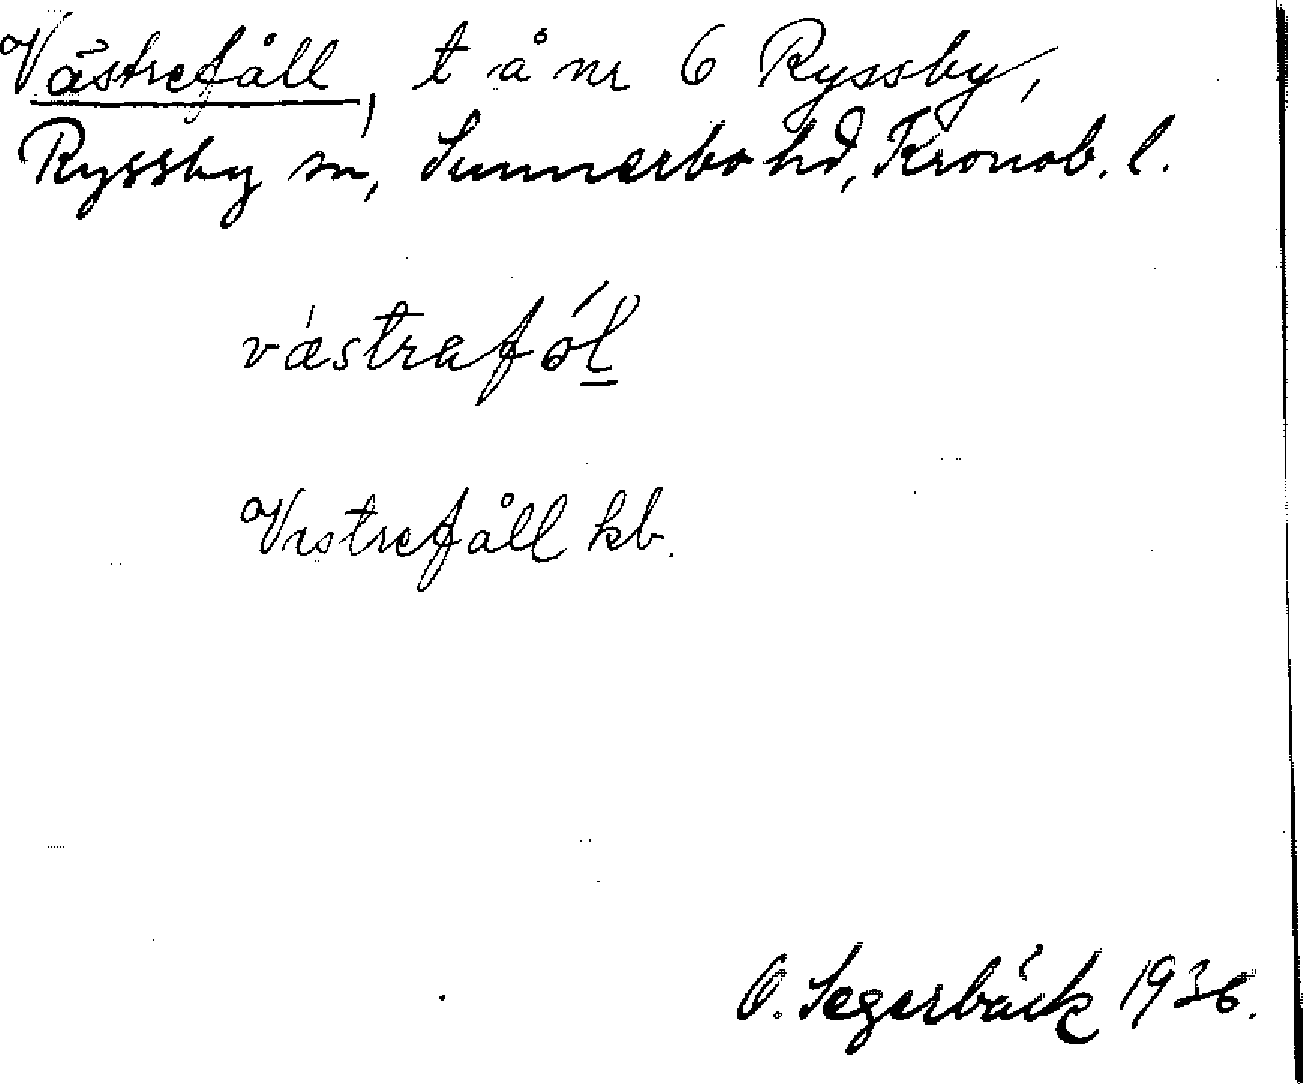 Västrefåll, t å nr 6 Ryssby,
Ryssby sn, Sunnerbo hd, Kronob. l.
va̍strafól̲
Vestrefåll kb.
O. Segerbäck 1936.